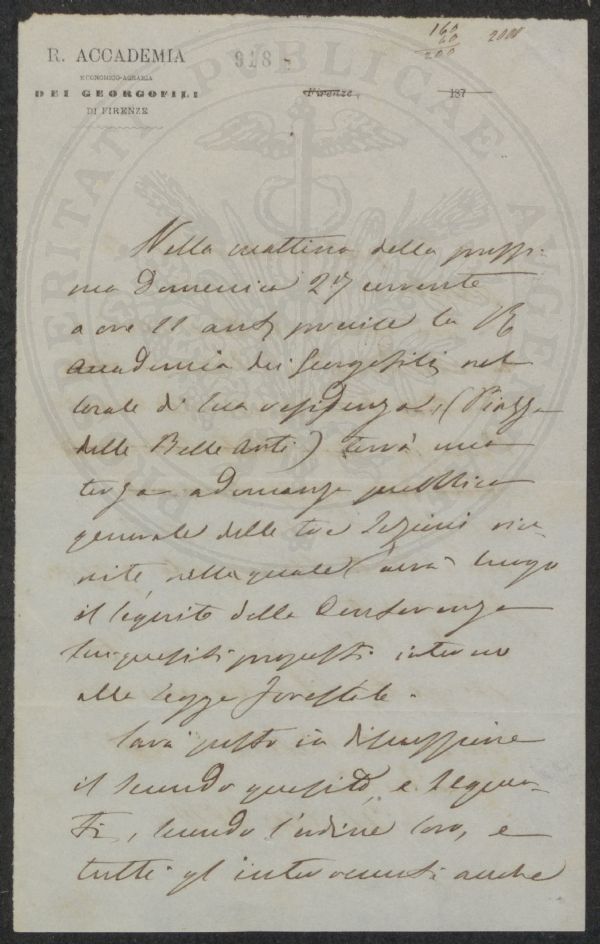 160
40
200
2000
R. ACCADEMIA
ECONOMICO-AGRARIA
DEI GEORGOFILI
DI FIRENZE
918
Firenze, 187
PROSPERITATI PUBLICAE AUGENDAE
Nella mattina della prossi-
ma Domenica 27 corrente
a ore 11 ant. precise la R.
Accademia dei Georgofili nel
locale di sua residenza, (Piazza
delle Belle Arti) terrà una
terza adunanza pubblica
generale delle tre Sezioni riu-
nite nella quale avrà luogo
il seguito della Conferenza
sui quesiti proposti intorno
alla Legge Forestale.
Sarà posto in discussione
il secondo quesito, e seguen-
ti, secondo l'ordine loro, e
tutti gl'intervenuti anche